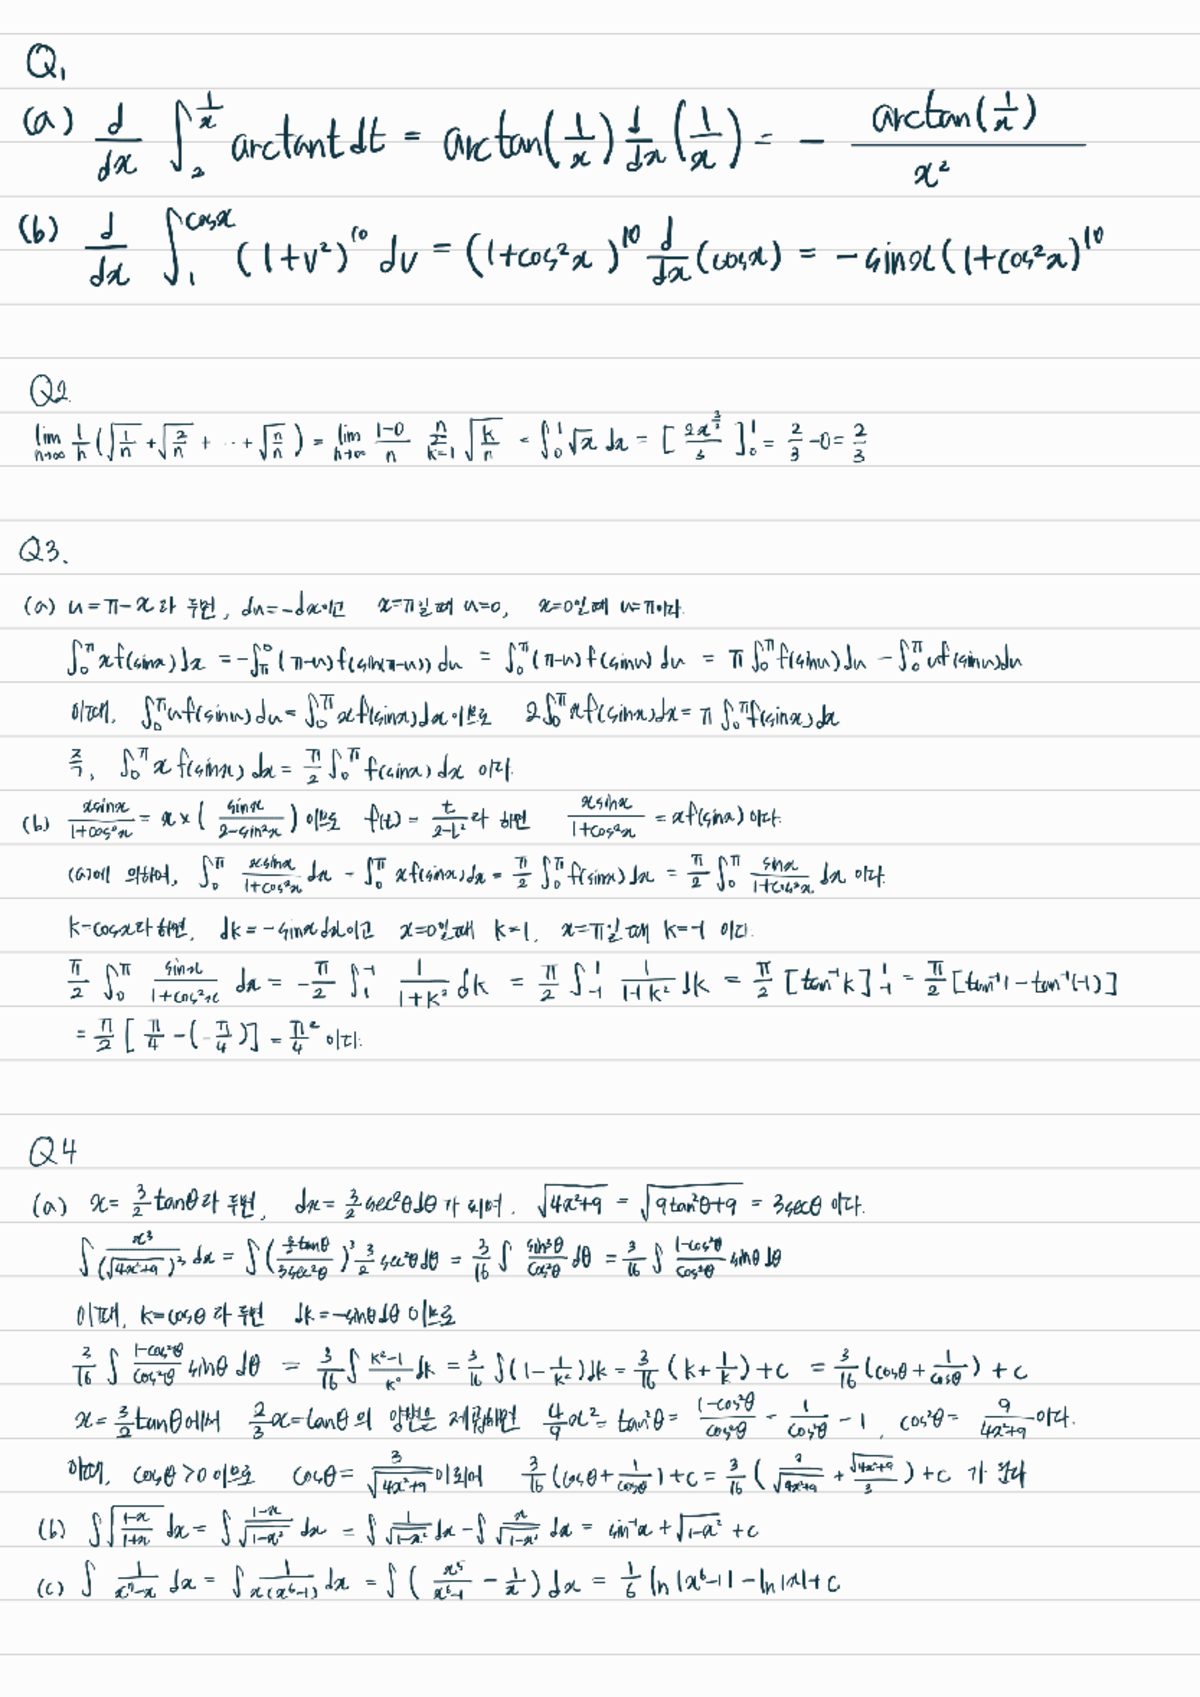 Q1
(a) d/dx ∫_2^{1/x} arctan t dt = arctan(1/x) d/dx (1/x) = - arctan(1/x)/x²
(b) d/dx ∫_1^{cosx} (1+v²)^10 dv = (1+cos²x)^10 d/dx (cosx) = -sinx(1+cos²x)^10
Q2.
lim_{n→∞} 1/n (√(1/n) + √(2/n) + ··· + √(n/n)) = lim_{n→∞} (1-0)/n Σ_{k=1}^{n} √(k/n) = ∫_0^1 √x dx = [2x^{3/2}/3]_0^1 = 2/3 - 0 = 2/3
Q3.
(a) u=π-x라 두면, du=-dx이고 x=π일때 u=0, x=0일때 u=π이다.
∫_0^π xf(sinx)dx = -∫_π^0 (π-u)f(sin(π-u))du = ∫_0^π (π-u)f(sinu)du = π∫_0^π f(sinu)du - ∫_0^π uf(sinu)du
이때, ∫_0^π uf(sinu)du = ∫_0^π xf(sinx)dx 이므로 2∫_0^π xf(sinx)dx = π∫_0^π f(sinx)dx
즉, ∫_0^π x f(sinx)dx = π/2 ∫_0^π f(sinx)dx 이다.
(b) xsinx/(1+cos²x) = x × (sinx/(2-sin²x)) 이므로 f(t) = t/(2-t²)라 하면 xsinx/(1+cos²x) = xf(sinx)이다.
(a)에 의하여, ∫_0^π xsinx/(1+cos²x) dx = ∫_0^π xf(sinx)dx = π/2 ∫_0^π f(sinx)dx = π/2 ∫_0^π sinx/(1+cos²x) dx 이다.
k=cosx라하면, dk=-sinxdx이고 x=0일때 k=1, x=π일때 k=-1 이다.
π/2 ∫_0^π sinx/(1+cos²x) dx = -π/2 ∫_1^{-1} 1/(1+k²) dk = π/2 ∫_{-1}^1 1/(1+k²) dk = π/2 [tan⁻¹k]_{-1}^1 = π/2 [tan⁻¹1 - tan⁻¹(-1)]
= π/2 [π/4 - (-π/4)] = π²/4 이다.
Q4
(a) x = 3/2 tanθ라 두면, dx = 3/2 sec²θdθ가 되며, √(4x²+9) = √(9tan²θ+9) = 3secθ 이다.
∫ x³/(√(4x²+9))³ dx = ∫ (3/2 tanθ/3sec²θ)³ 3/2 sec²θdθ = 3/16 ∫ sin³θ/cos²θ dθ = 3/16 ∫ (1-cos²θ)/cos²θ sinθ dθ
이때, k=cosθ라 두면 dk=-sinθdθ 이므로
3/16 ∫ (1-cos²θ)/cos²θ sinθ dθ = 3/16 ∫ (k²-1)/k² dk = 3/16 ∫(1-1/k²)dk = 3/16 (k+1/k)+c = 3/16 (cosθ+1/cosθ)+c
x=3/2 tanθ에서 2/3 x=tanθ의 양변을 제곱하면 4/9 x² = tan²θ = (1-cos²θ)/cos²θ = 1/cos²θ - 1, cos²θ = 9/(4x²+9)이다.
이때, cosθ>0이므로 cosθ = 3/√(4x²+9)이되어 3/16 (cosθ+1/cosθ)+c = 3/16 (3/√(4x²+9) + √(4x²+9)/3)+c 가 된다
(b) ∫√((1-x)/(1+x)) dx = ∫ (1-x)/√(1-x²) dx = ∫ 1/√(1-x²) dx - ∫ x/√(1-x²) dx = sin⁻¹x + √(1-x²) + c
(c) ∫ 1/(x⁷-x) dx = ∫ 1/(x(x⁶-1)) dx = ∫ (x⁵/(x⁶-1) - 1/x) dx = 1/6 ln|x⁶-1| - ln|x| + c